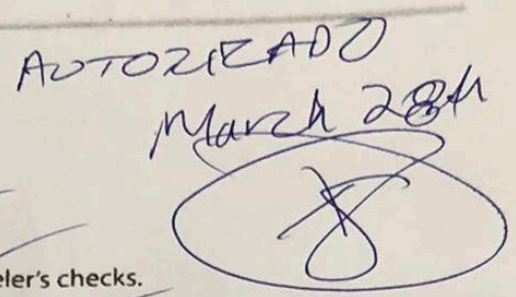 AUTORIZADO
March 28th
eler's checks.